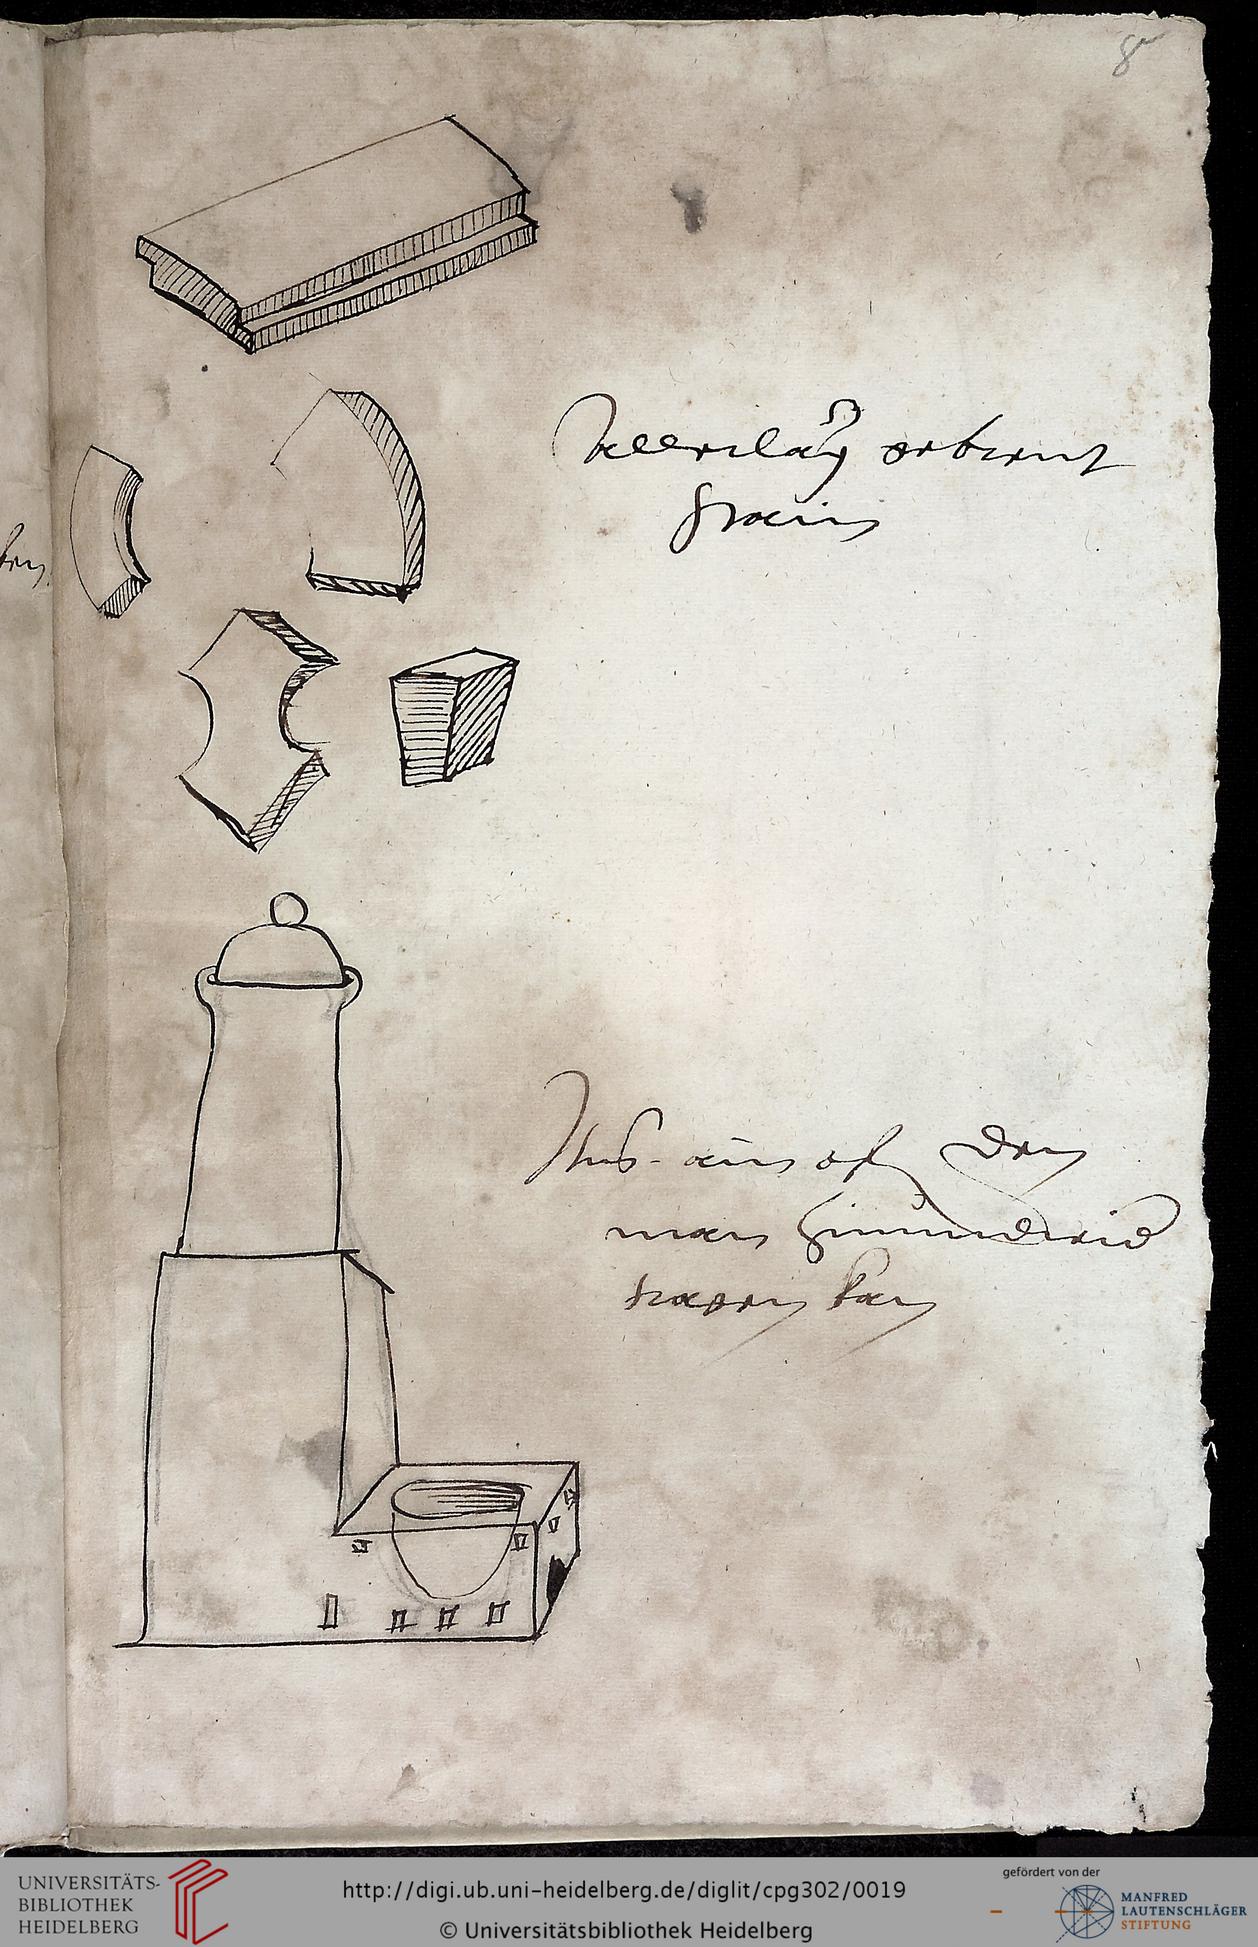 8r
allerlay gebrent
stain
Das ain of den
man hin und wid
tragen kan
UNIVERSITÄTS-
BIBLIOTHEK
HEIDELBERG
http://digi.ub.uni-heidelberg.de/diglit/cpg302/0019
© Universitätsbibliothek Heidelberg
gefördert von der
MANFRED
LAUTENSCHLÄGER
STIFTUNG